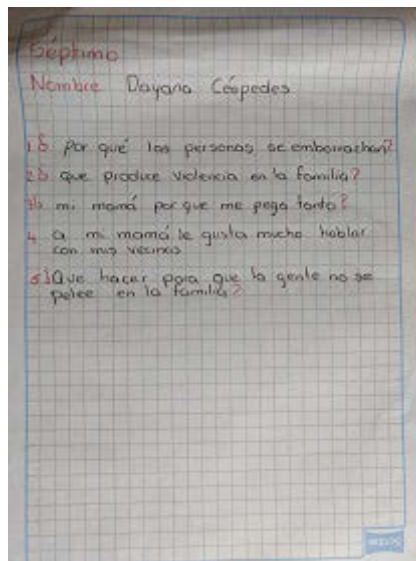 Séptimo
Nombre Dayana Céspedes
1 ¿ Por qué las personas se emborrachan?
2 ¿ que produce violencia en la familia?
3 ¿ mi mamá por que me pega tanto?
4 a mi mamá le gusta mucho hablar
con mis vecinos
5 ¿ Que hacer para que la gente no se
pelee en la familia?